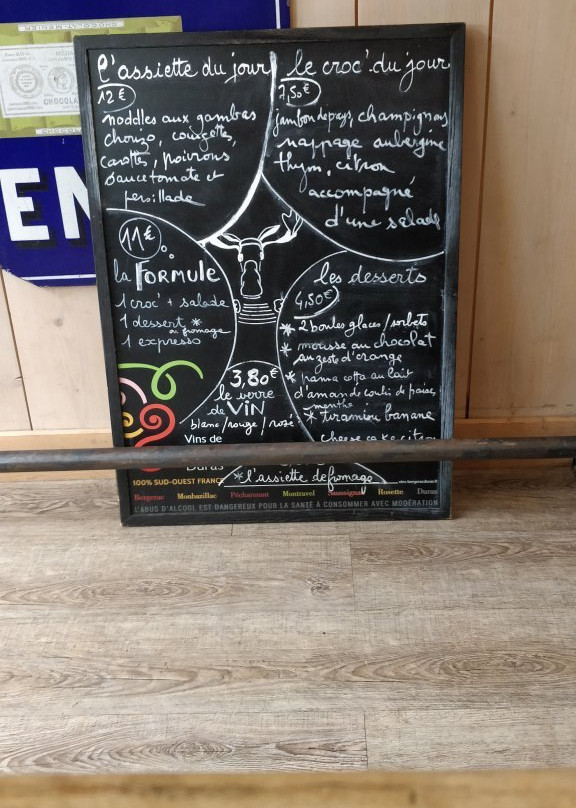 CHOCOLAT-MENIER
CHOCOLA
EN
l'assiette du jour
12€
noddles aux gambas
chorizo, courgettes,
carottes, poivrons
sauce tomate et
persillade
le croc' du jour
7,50€
jambon de pays, champignons
nappage aubergine
thym, citron
accompagné
d'une salade
11€
la FORMULE
1 croc' + salade
1 dessert *
ou fromage
1 expresso
les desserts
4,50€
* 2 boules glaces / sorbets
* mousse au chocolat
au zeste d'orange
* panna cotta au lait
d'amande coulis de poires,
menthe
* tiramisu banane
cheese cake citron
3,80€
le verre
de VIN
blanc / rouge / rosé
Vins de
Duras
* l'assiette de fromage
100% SUD-OUEST FRANCE
Bergerac Monbazillac Pécharmant Montravel Saussignac Rosette Duras
L'ABUS D'ALCOOL EST DANGEREUX POUR LA SANTÉ À CONSOMMER AVEC MODÉRATION